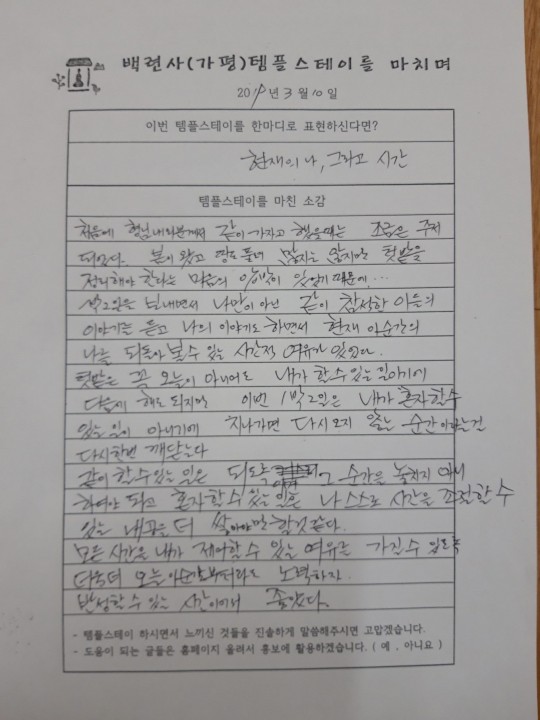 백련사(가평)템플스테이를 마치며
2019년 3월 10일
이번 템플스테이를 한마디로 표현하신다면?
현재의 나, 그리고 시간
템플스테이를 마친 소감
처음에 형님내외분께서 같이 가자고 했을때는 조금은 주저
되었다. 봄이 왔고 땅도 풀려 많지는 않지만 텃밭을
정리해야 한다는 마음의 압박이 있었기 때문에...
1박2일을 보내면서 나만이 아닌 같이 참석한 이들의
이야기를 듣고 나의 이야기도 하면서 현재 이순간의
나를 되돌아 볼수 있는 시간적 여유가 있었다.
텃밭은 꼭 오늘이 아니어도 내가 할수 있는 일이기에
다음에 해도 되지만 이번 1박2일은 내가 혼자할수
있는 일이 아니기에 지나가면 다시오지 않는 순간이라는걸
다시한번 깨닫는다
같이 할수있는 일은 되도록 그 순간을 놓치지 마니
하여야 되고 혼자할수 있는 일은 나 스스로 시간을 조절할 수
있는 내공을 더 쌓아야만 할것같다.
모든 시간을 내가 제어할 수 있는 여유를 가질수 있도록
더욱더 오늘 이순간부터라도 노력하자.
반성할수 있는 시간이어서 좋았다.
- 템플스테이 하시면서 느끼신 것들을 진솔하게 말씀해주시면 고맙겠습니다.
- 도움이 되는 글들은 홈페이지 올려서 홍보에 활용하겠습니다. ( 예 , 아니요 )